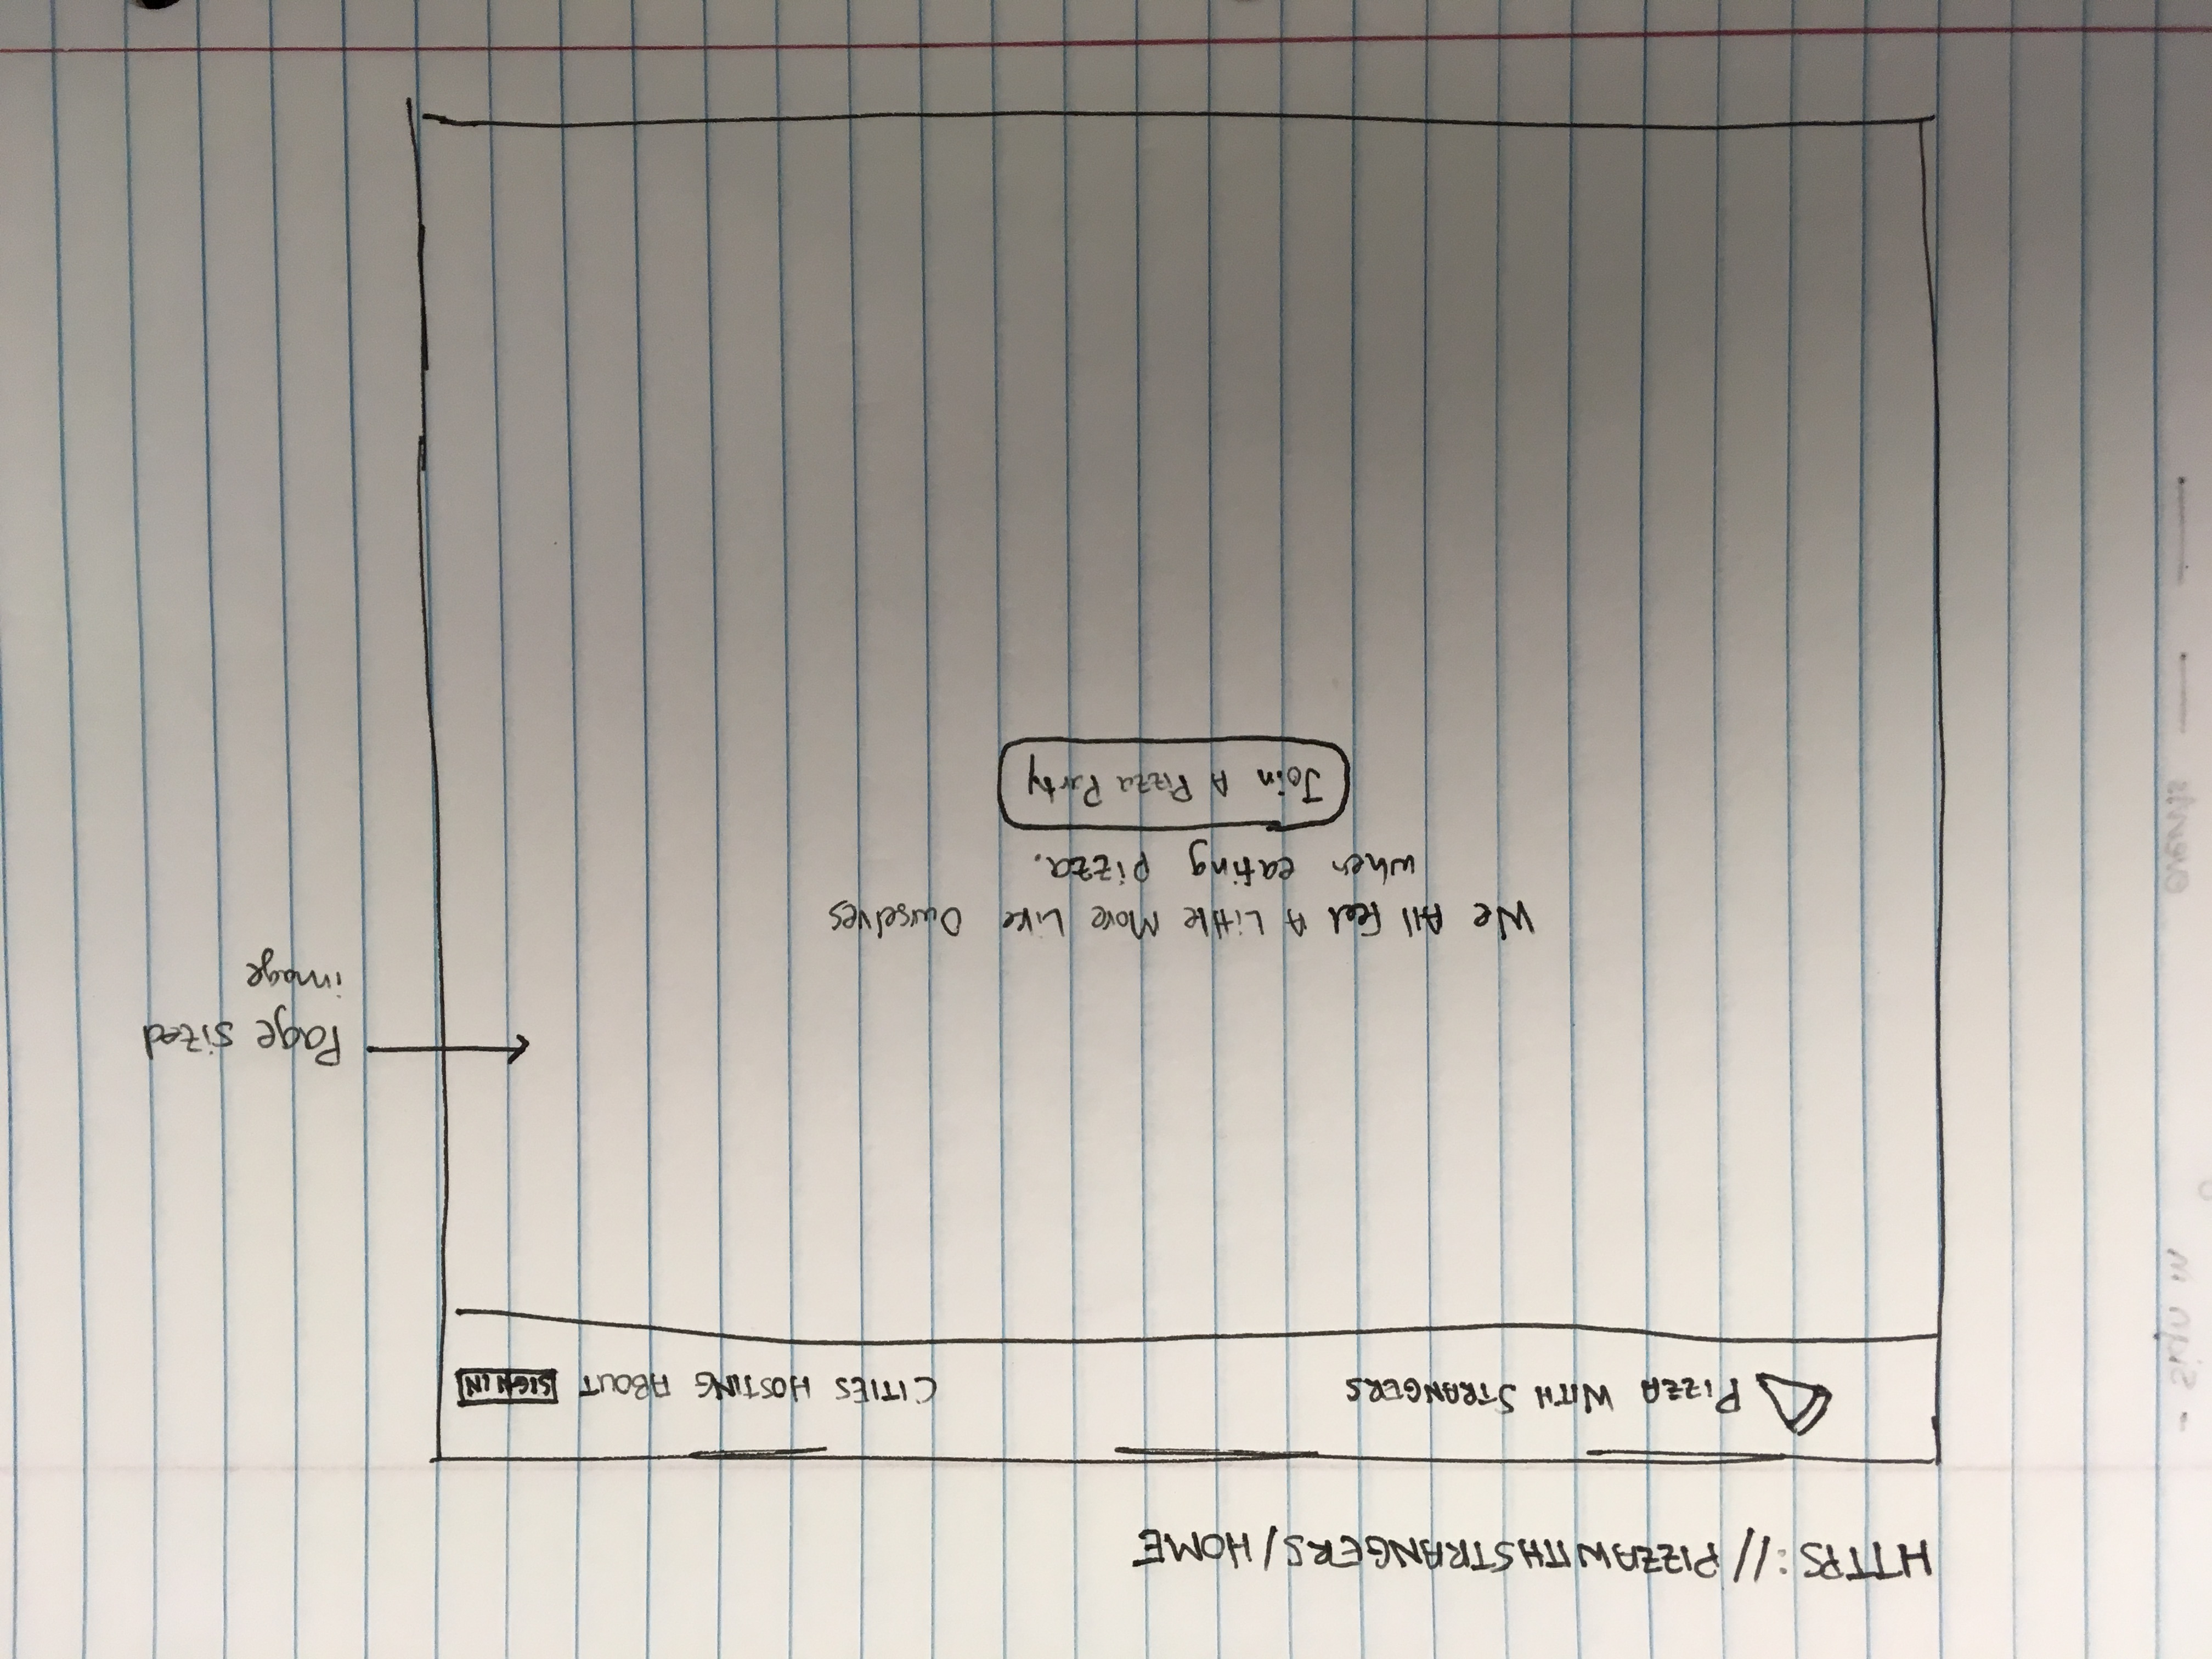 HTTPS://PIZZAWITHSTRANGERS/HOME
PIZZA WITH STRANGERS CITIES HOSTING ABOUT SIGN IN
Page sized
image
We All Feel A Little More Like Ourselves
when eating pizza.
Join A Pizza Party